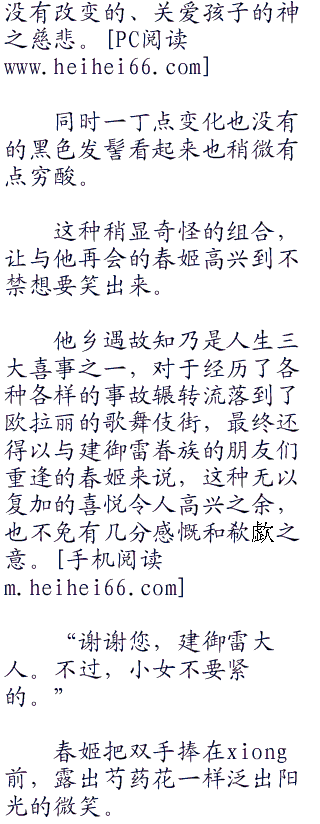 没有改变的、关爱孩子的神
之慈悲。[PC阅读
www.heihei66.com]
同时一丁点变化也没有
的黑色发髻看起来也稍微有
点穷酸。
这种稍显奇怪的组合，
让与他再会的春姬高兴到不
禁想要笑出来。
他乡遇故知乃是人生三
大喜事之一，对于经历了各
种各样的事故辗转流落到了
欧拉丽的歌舞伎街，最终还
得以与建御雷眷族的朋友们
重逢的春姬来说，这种无以
复加的喜悦令人高兴之余，
也不免有几分感慨和欷歔之
意。[手机阅读
m.heihei66.com]
“谢谢您，建御雷大
人。不过，小女不要紧
的。”
春姬把双手捧在xiong
前，露出芍药花一样泛出阳
光的微笑。